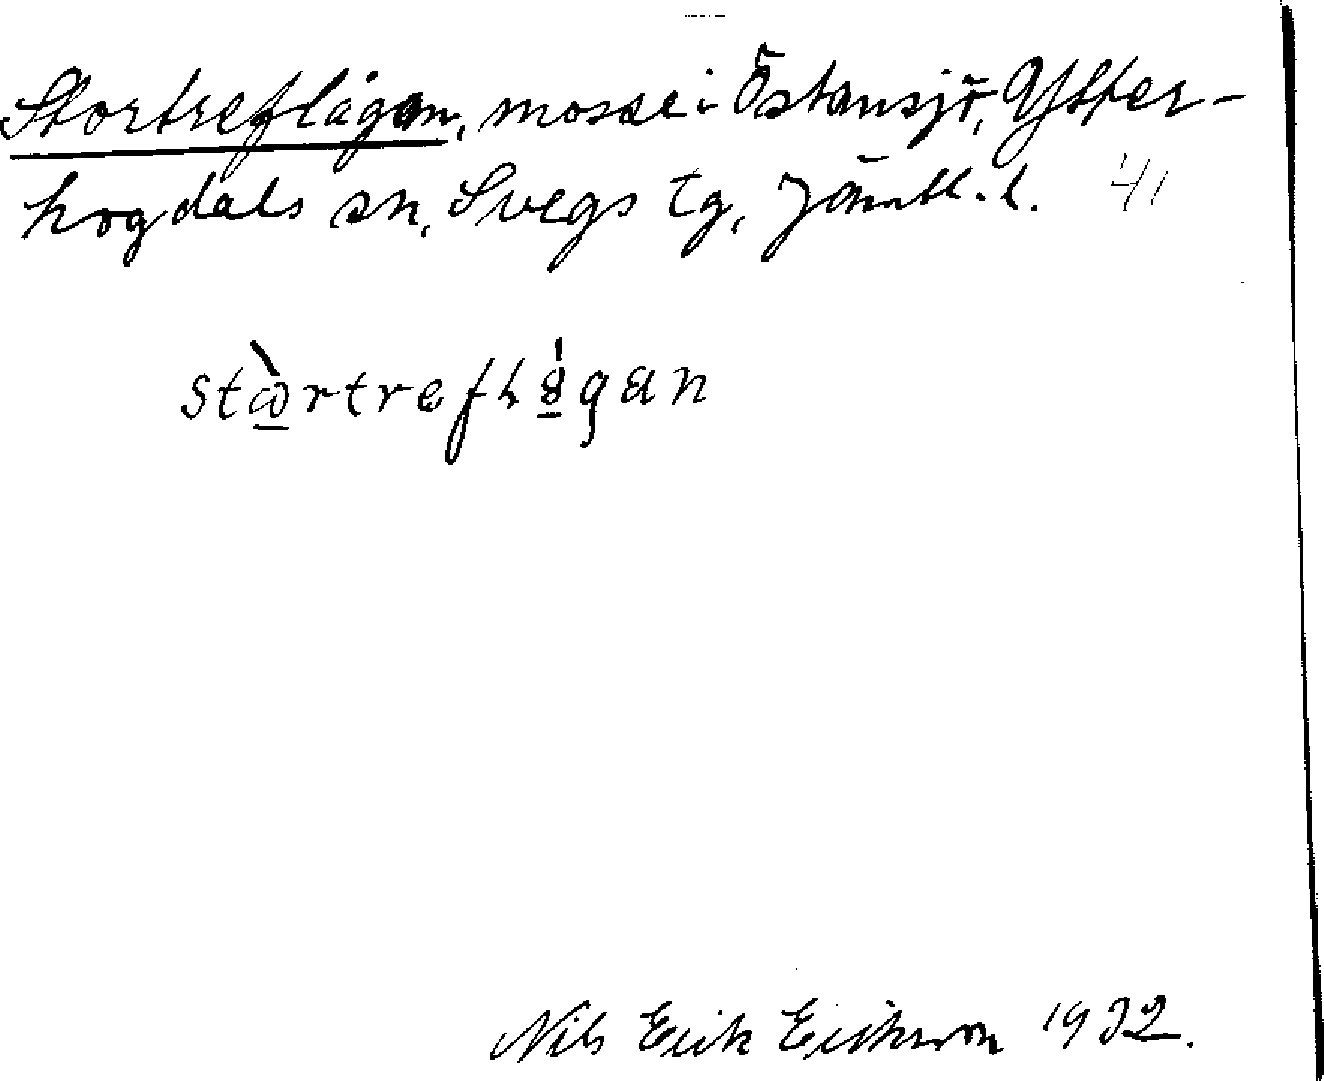 Stortreflågan, mosse i Östansjö, Ytter-
hogdals sn, Svegs tg, Jämtl. l. 41
stò̱rtreflå̱gan
Nils Erik Erikson 1932.